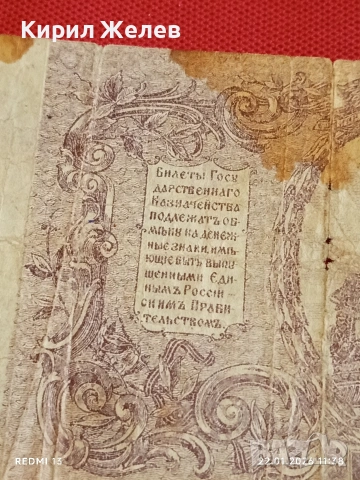 Кирил Желев
БИЛЕТЫ ГОСУ
ДАРСТВЕННАГО
КАЗНАЧЕЙСТВА
ПОДЛЕЖАТЪ ОБ-
МѢНУ НА ДЕНЕЖ-
НЫЕ ЗНАКИ, ИМѢ-
ЮЩІЕ БЫТЬ ВЫПУ-
ЩЕННЫМИ ЕДИ-
НЫМЪ РОССІЙ-
СКИМЪ ПРАВИ-
ТЕЛЬСТВОМЪ.
REDMI 13
22.01.2026 11:38